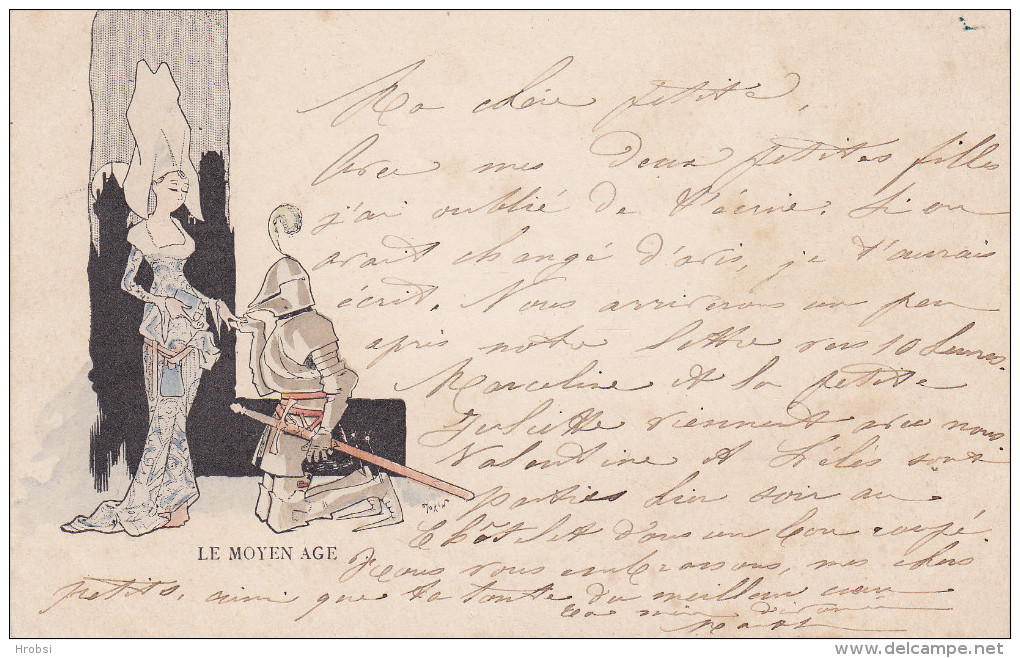 Ma chère petite,
Avec mes deux petites filles
j'ai oublié de t'écrire. Si on
avait changé d'avis, je t'aurais
écrit. Nous arriverons un peu
après notre lettre vers 10 heures.
Marceline et la petite
Juliette viennent avec nous
Valentine et sont
parties hier soir au
Châtelet dans un bon coupé.
Nous vous embrassons, mes chers
petits, ainsi que ta tante du meilleur cœur
Ta
MORIN
LE MOYEN AGE
Hrobsi
www.delcampe.net